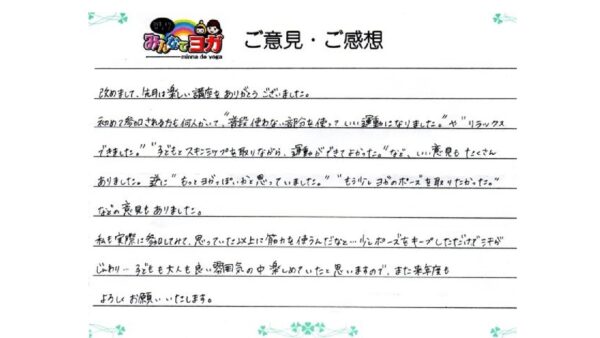 みんなでヨガ
minna de yoga
ご意見・ご感想
改めまして、先月は楽しい講座をありがとうございました。
初めて参加される方も何人かいて、"普段使わない部分を使っていい運動になりました。"や"リラックス
できました。""子どもとスキンシップを取りながら、運動ができてよかった。"など、いい意見もたくさん
ありました。逆に"もっとヨガっぽいかと思っていました。""もう少しヨガのポーズを取りたかった。"
などの意見もありました。
私も実際に参加してみて、思っていた以上に筋力を使うんだなと…少しポーズをキープしただけで汗が
じんわり… 子どもも大人も良い雰囲気の中楽しめていたと思いますので、また来年度も
よろしくお願いいたします。